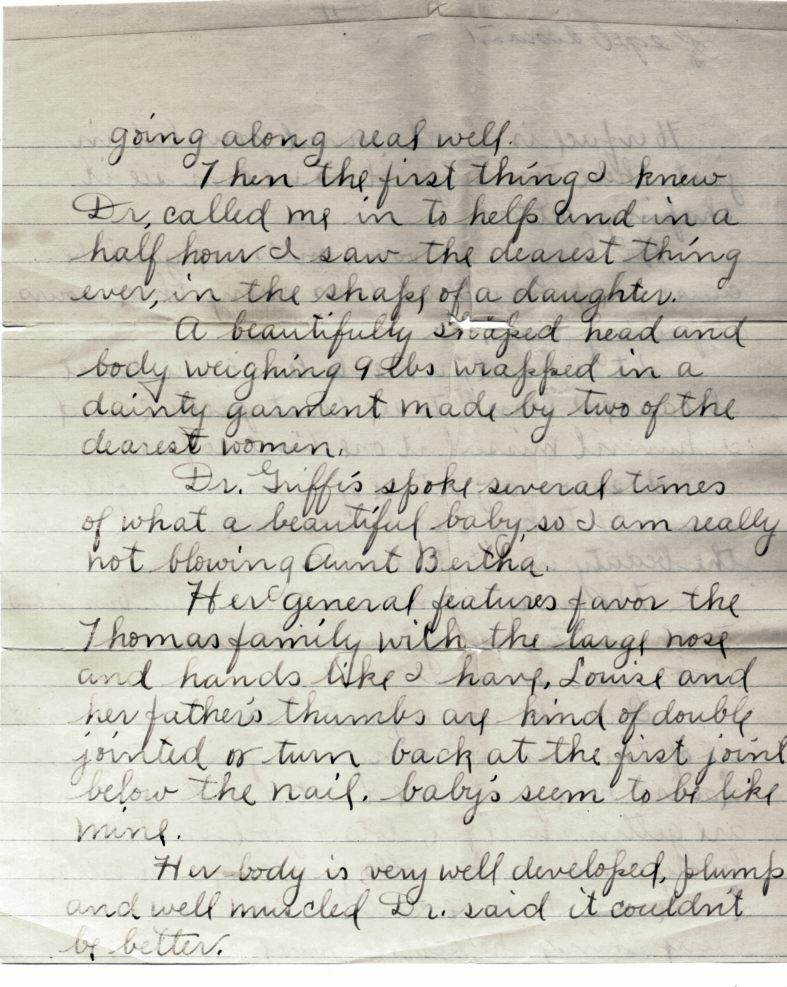 going along real well.
Then the first thing I knew
Dr, called me in to help and in a
half hour I saw the dearest thing
ever, in the shape of a daughter.
A beautifully shaped head and
body weighing 9 lbs wrapped in a
dainty garment made by two of the
dearest women.
Dr. Griffis spoke several times
of what a beautiful baby, so I am really
not blowing Aunt Bertha.
Her general features favor the
Thomas family with the large nose
and hands like I have, Louise and
her father's thumbs are kind of double
jointed or turn back at the first joint
below the nail. baby's seem to be like
mine.
Her body is very well developed, plump
and well muscled Dr. said it couldn't
be better.